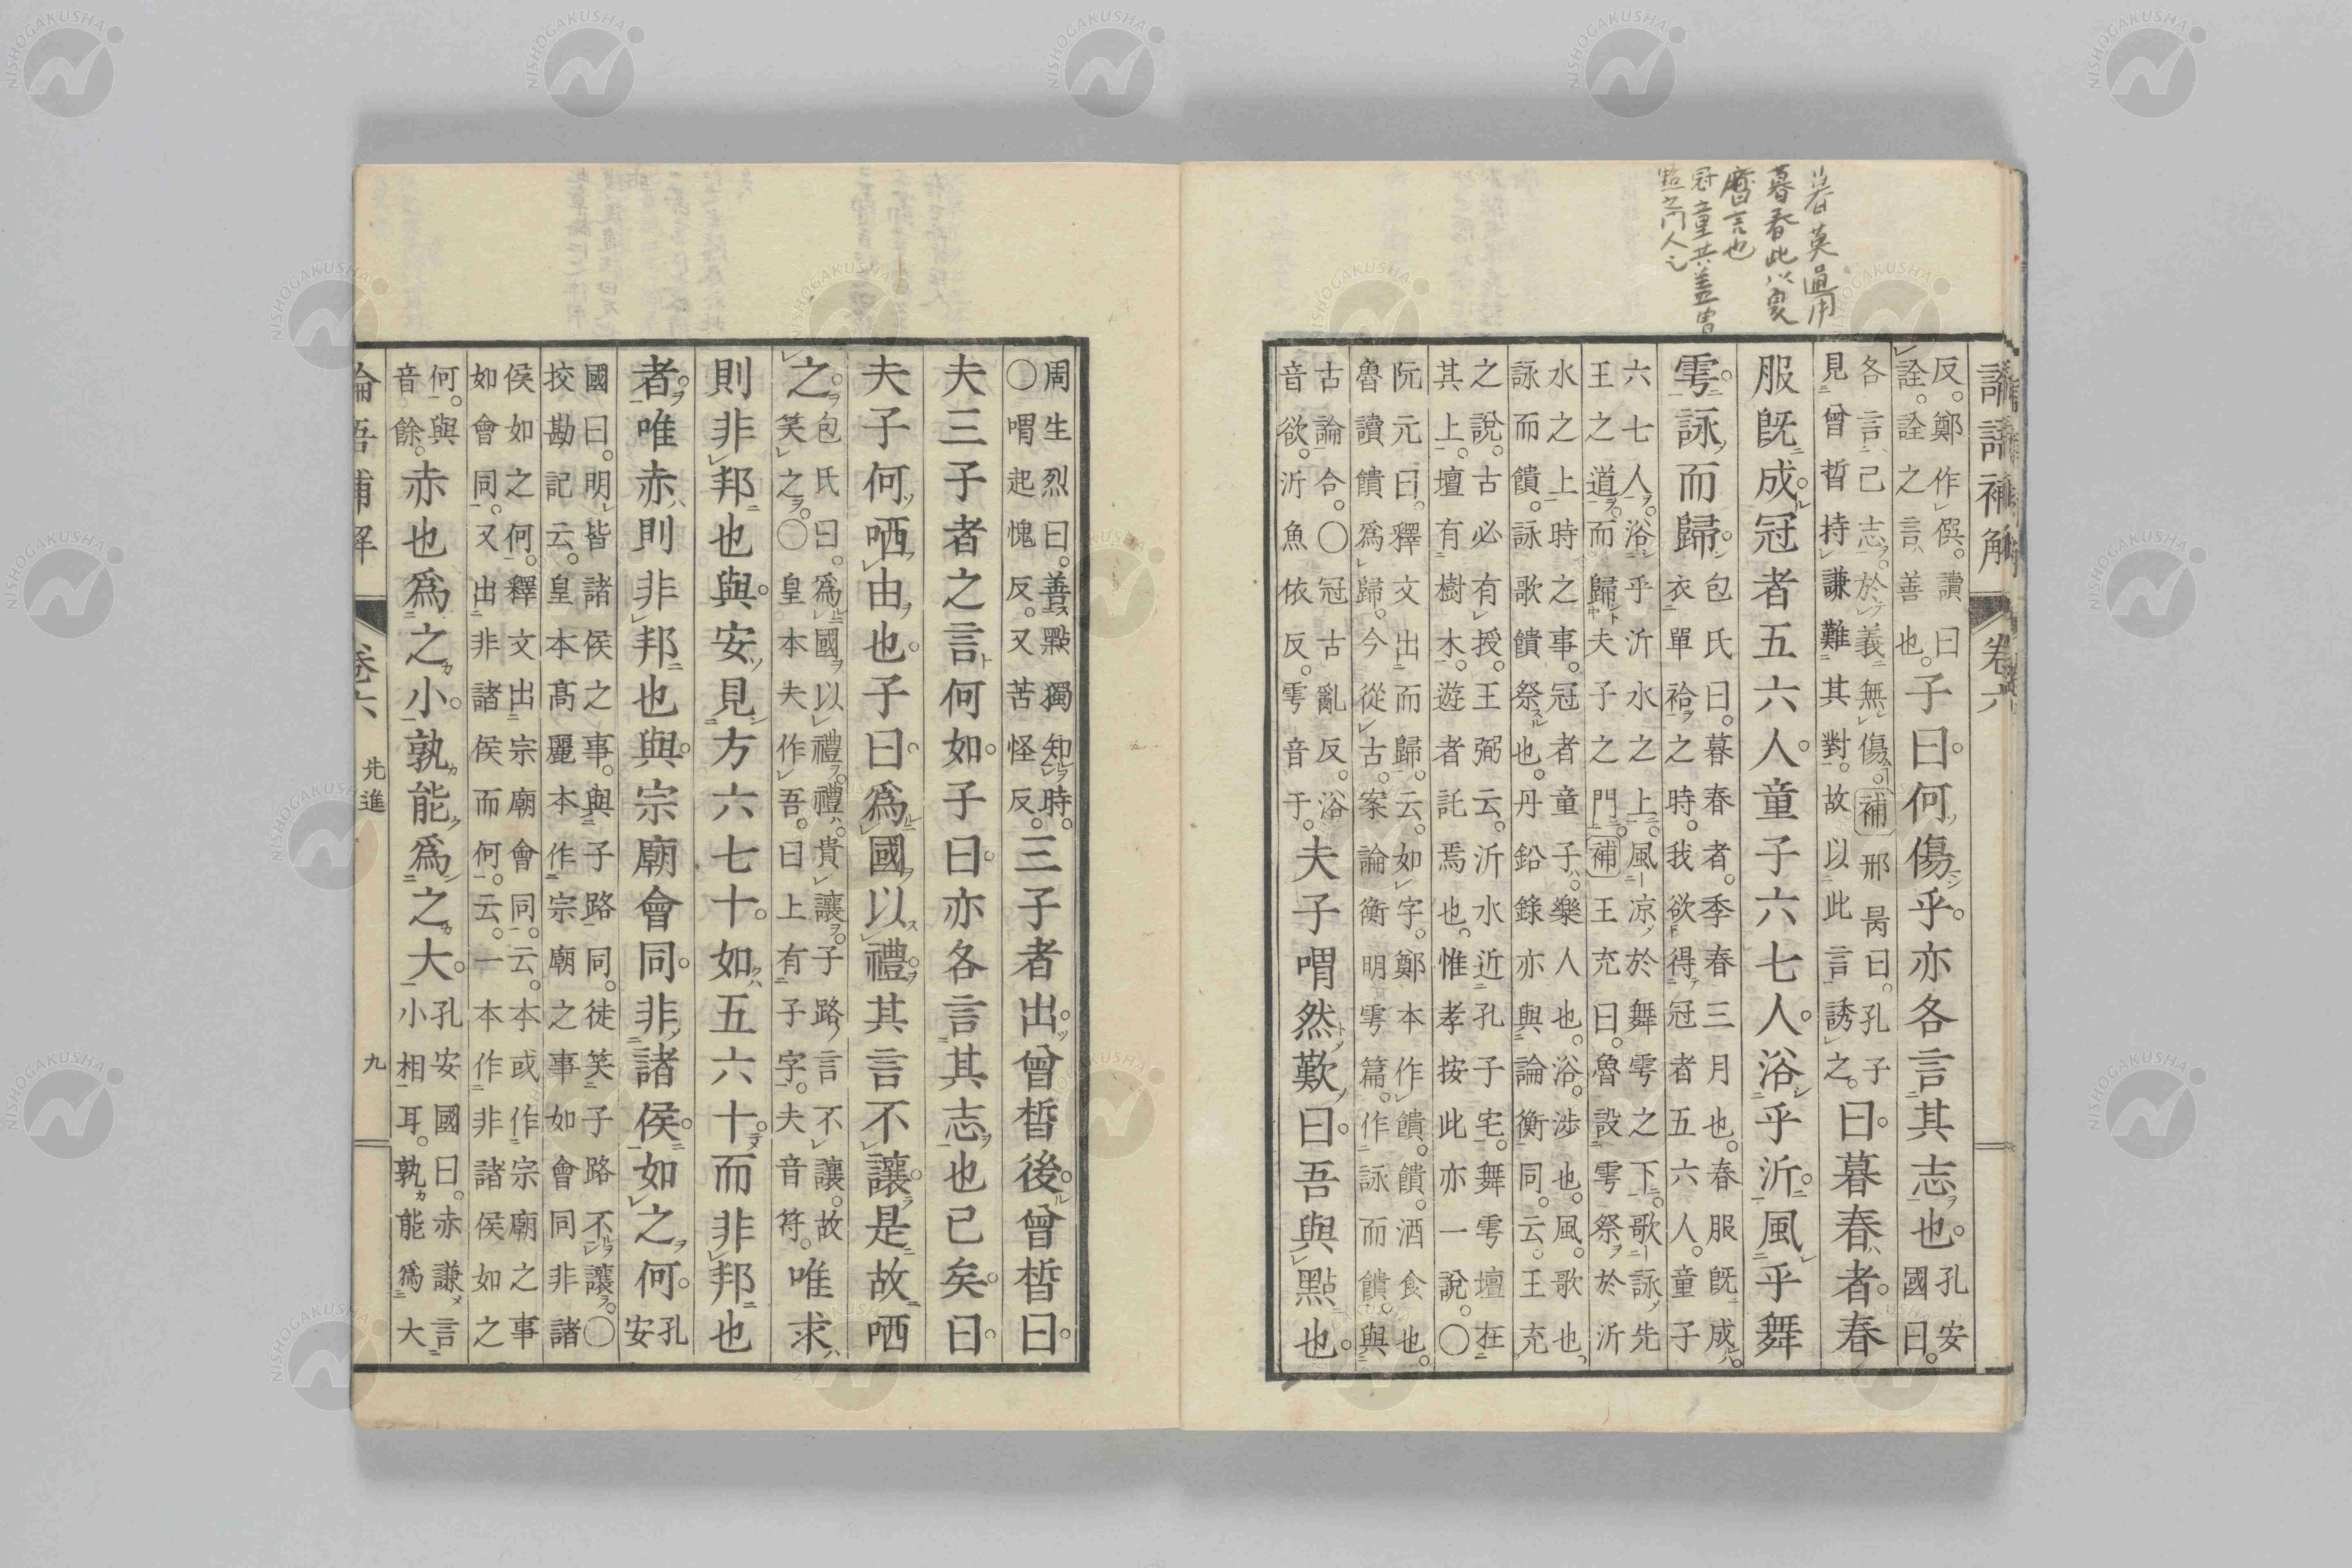 暮莫通用
暮春此以夏
暦言也
冠童共蓋曾
點之門人也
論語補解 卷六
反。鄭作僎。讀曰
詮。詮之言善也。子曰。何傷乎。亦各言其志也。孔安
國曰。
各言己志。於義無傷。補邢昺曰。孔子
見曾晳持謙難其對。故以此言誘之。曰。暮春者。春
服既成。冠者五六人。童子六七人。浴乎沂。風乎舞
雩。詠而歸。包氏曰。暮春者。季春三月也。春服既成。
衣單袷之時。我欲得冠者五六人。童子
六七人。浴乎沂水之上。風涼於舞雩之下。歌詠先
王之道。而歸夫子之門。補王充曰。魯設雩祭於沂
水之上時之事。冠者童子。樂人也。浴。涉也。風。歌也。
詠而饋。詠歌饋祭也。丹鉛錄亦與論衡同。云。王充
之說。古必有授。王弼云。沂水近孔子宅。舞雩壇在
其上。壇有樹木。遊者託焉也。惟孝按此亦一說。〇
阮元曰。釋文出而歸。云。如字。鄭本作饋。饋。酒食也。
魯讀饋爲歸。今從古。案論衡明雩篇。作詠而饋。與
古論合。〇冠古亂反。浴
音欲。沂魚依反。雩音于。夫子喟然歎曰。吾與點也。
周生烈曰。善點獨知時。
〇喟起愧反。又苦怪反。三子者出。曾晳後。曾晳曰。
夫三子者之言何如。子曰。亦各言其志也已矣。曰。
夫子何哂由也。子曰。爲國以禮。其言不讓。是故哂
之。包氏曰。爲國以禮。禮貴讓。子路言不讓。故
笑之。〇皇本夫作吾。曰上有子字。夫音符。唯求
則非邦也與。安見方六七十。如五六十。而非邦也
者。唯赤則非邦也與。宗廟會同。非諸侯。如之何。孔
安
國曰。明皆諸侯之事。與子路同。徒笑子路不讓。〇
挍勘記云。皇本高麗本作宗廟之事如會同非諸
侯如之何。釋文出宗廟會同。云。本或作宗廟之事
如會同。又出非諸侯而何。云。一本作非諸侯如之
何。與
音餘。赤也爲之小。孰能爲之大。孔安國曰。赤謙言
小相耳。孰能爲大
論語補解 卷六 先進 九
NISHOGAKUSHA